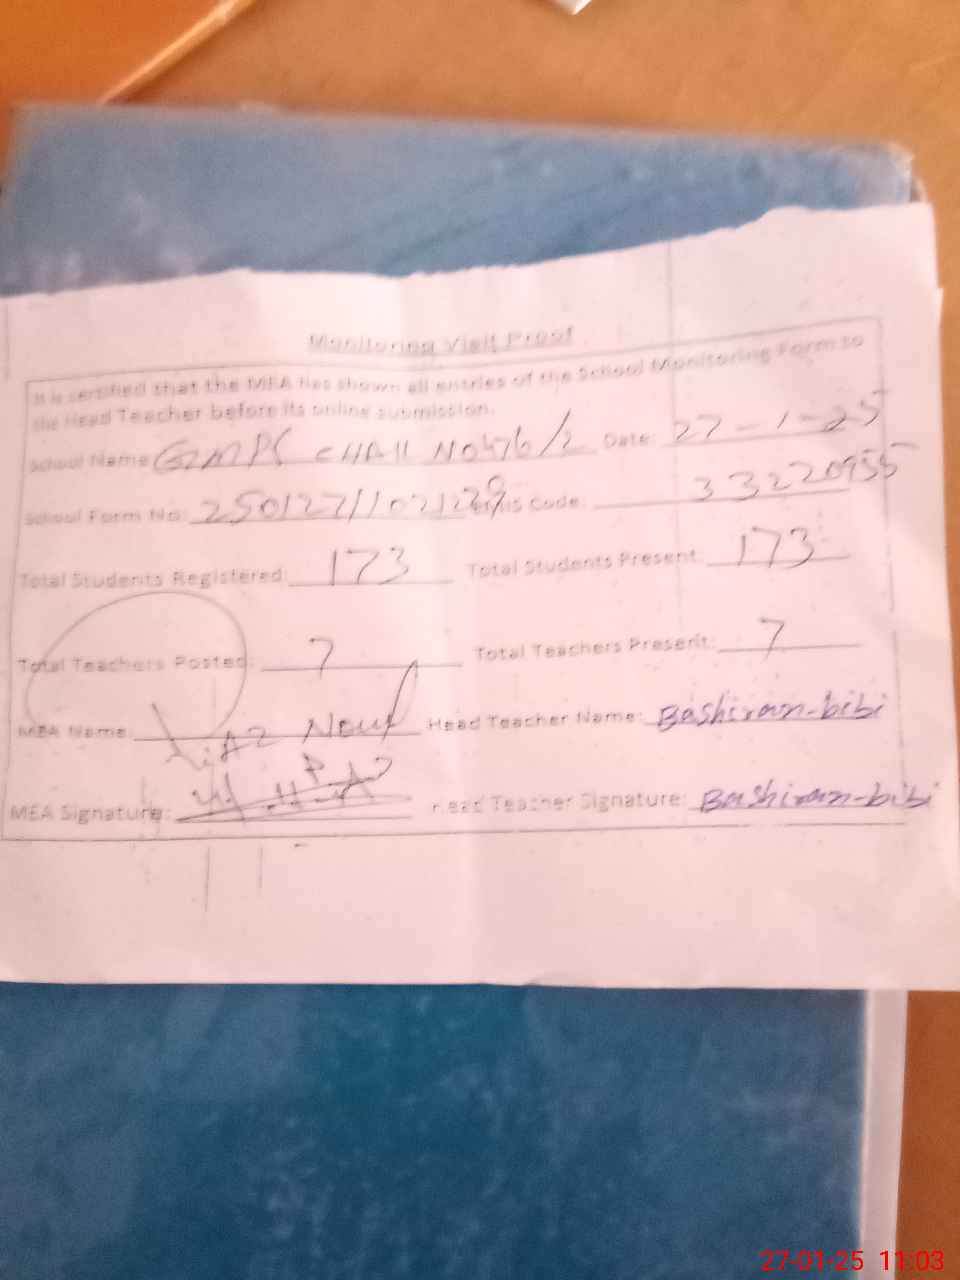 Monitoring Visit Proof
It is certified that the MEA has shown all entries of the School Monitoring Form to
the Head Teacher before its online submission.
School Name Date: 27-1-25
School Form No: Code: 33220955
Total Students Registered: 173 Total Students Present: 173
Total Teachers Posted: 7 Total Teachers Present: 7
MEA Name: Head Teacher Name: Bashiran-bibi
MEA Signature: Head Teacher Signature: Bashiran-bibi
27-01-25 11:03